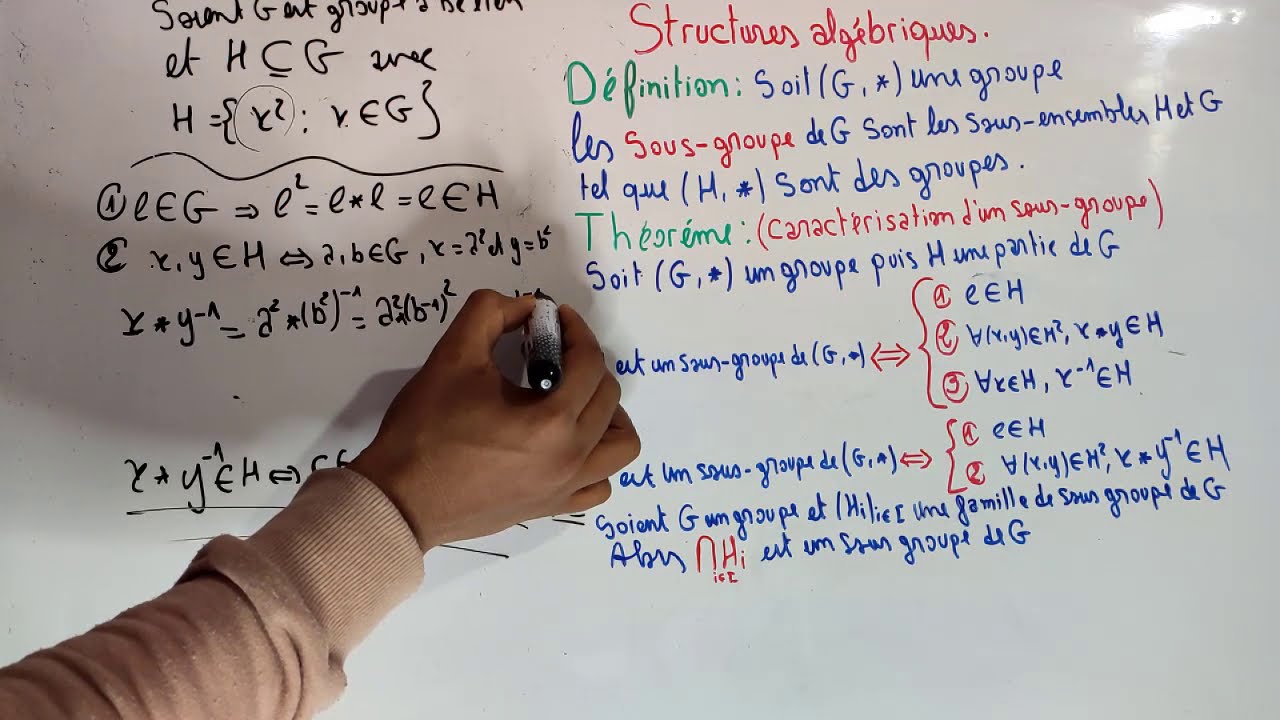 Soient G est groupe abélien
et H ⊆ G avec
H = { x² : x ∈ G }
① e ∈ G ⇒ e² = e * e = e ∈ H
② x, y ∈ H ⇔ a, b ∈ G, x = a² et y = b²
x * y⁻¹ = a² * (b²)⁻¹ = a² * (b⁻¹)²
x * y⁻¹ ∈ H ⇔
Structures algébriques.
Définition : Soit (G, *) une groupe
les sous-groupe de G sont les sous-ensembles H et G
tel que (H, *) sont des groupes.
Théoréme : (caractérisation d'un sous-groupe)
Soit (G, *) un groupe puis H une partie de G
est un sous-groupe de (G, *) ⇔
① e ∈ H
② ∀(x,y) ∈ H², x * y ∈ H
③ ∀x ∈ H, x⁻¹ ∈ H
est un sous-groupe de (G, *) ⇔
① e ∈ H
② ∀(x,y) ∈ H², x * y⁻¹ ∈ H
Soient G un groupe et (Hi)i∈I une famille de sous groupe de G
Alors ⋂ Hi est un sous groupe de G
i∈I